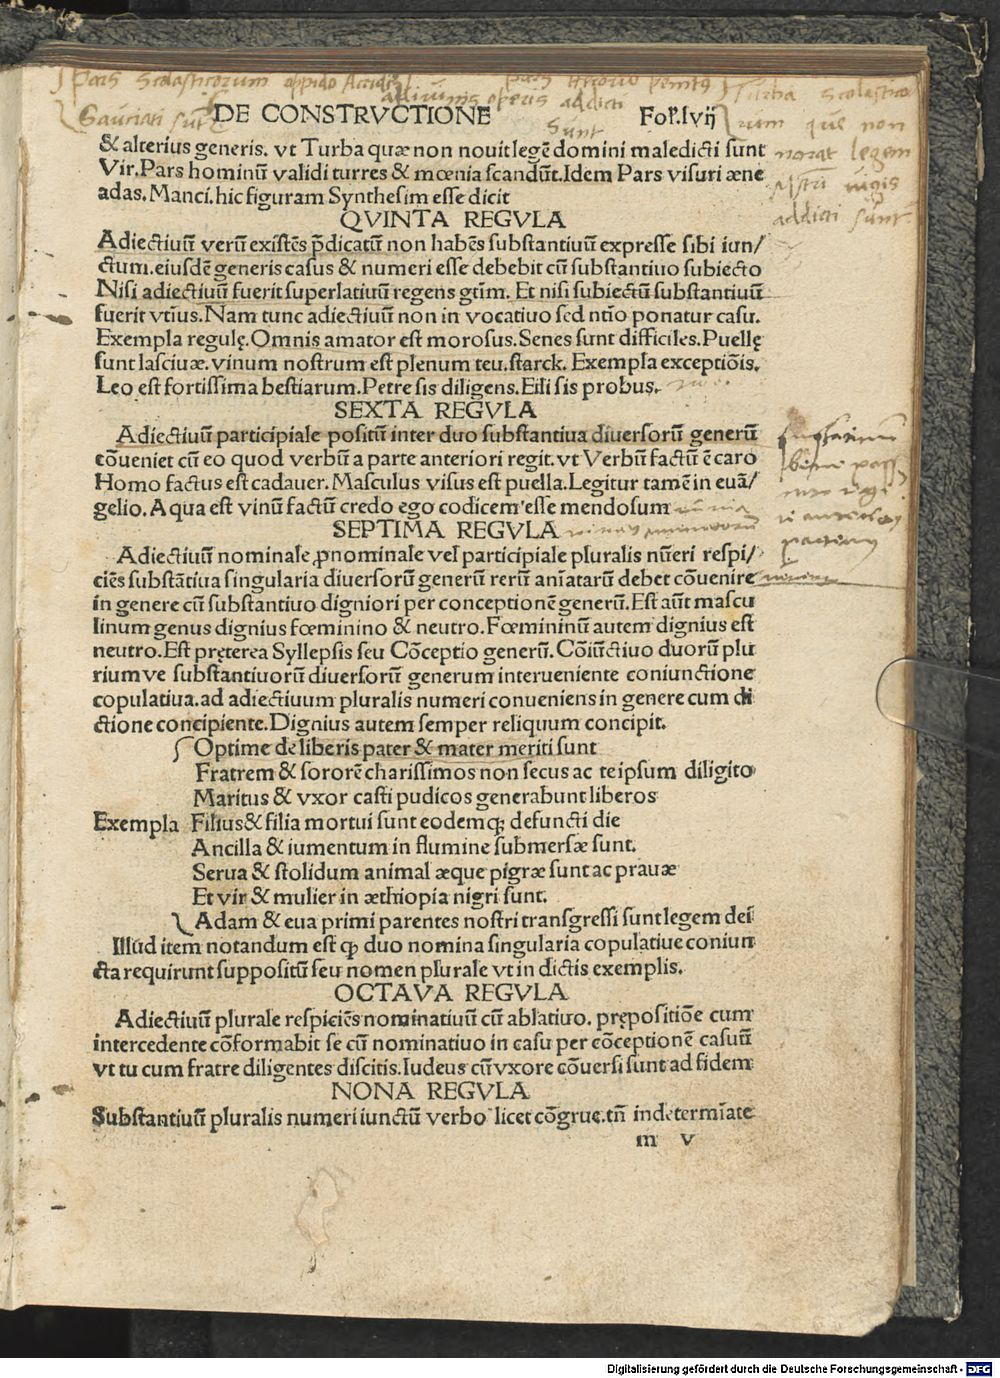 DE CONSTRVCTIONE Fol'. lvij
& alterius generis. vt Turba quæ non nouit legē domini maledicti sunt
Vir. Pars hominū validi turres & mœnia scandūt. Idem Pars visuri æne
adas. Manci. hic figuram Synthesim esse dicit
QVINTA REGVLA
Adiectiuū verū existēs p̄dicatū non habēs substantiuū expresse sibi iun/
ctum. eiusdē generis casus & numeri esse debebit cū substantiuo subiecto
Nisi adiectiuū fuerit superlatiuū regens gtm̄. Et nisi subiectū substantiuū
fuerit vtius. Nam tunc adiectiuū non in vocatiuo sed ntīo ponatur casu.
Exempla regulę. Omnis amator est morosus. Senes sunt difficiles. Puellę
sunt lasciuæ. vinum nostrum est plenum teu. starck. Exempla exceptiōis.
Leo est fortissima bestiarum. Petre sis diligens. Eili sis probus.
SEXTA REGVLA
Adiectiuū participiale positū inter duo substantiua diuersorū generū
cōueniet cū eo quod verbū a parte anteriori regit. vt Verbū factū ē caro
Homo factus est cadauer. Masculus visus est puella. Legitur tamē in euā/
gelio. Aqua est vinū factū credo ego codicem esse mendosum
SEPTIMA REGVLA
Adiectiuū nominale ꝓnominale vel participiale pluralis nūeri respi/
ciēs substātiua singularia diuersorū generū rerū anīatarū debet cōuenire
in genere cū substantiuo digniori per conceptionē generū. Est aūt mascu
linum genus dignius fœminino & neutro. Fœmininū autem dignius est
neutro. Est pręterea Syllepsis seu Cōceptio generū. Cōiūctiuo duorū plu
rium ve substantiuorū diuersorū generum interueniente coniunctione
copulatiua. ad adiectiuum pluralis numeri conueniens in genere cum di
ctione concipiente. Dignius autem semper reliquum concipit.
Optime de liberis pater & mater meriti sunt
Fratrem & sororē charissimos non secus ac teipsum diligito
Maritus & vxor casti pudicos generabunt liberos
Exempla Filius & filia mortui sunt eodemqꝫ defuncti die
Ancilla & iumentum in flumine submersæ sunt.
Serua & stolidum animal æque pigræ sunt ac prauæ
Et vir & mulier in æthiopia nigri sunt.
Adam & eua primi parentes nostri transgressi sunt legem dei
Illud item notandum est ꝙ duo nomina singularia copulatiue coniun
cta requirunt suppositū seu nomen plurale vt in dictis exemplis.
OCTAVA REGVLA
Adiectiuū plurale respiciēs nominatiuū cū ablatiuo. prępositiōe cum
intercedente cōformabit se cū nominatiuo in casu per cōceptionē casuū
vt tu cum fratre diligentes discitis. Iudeus cū vxore cōuersi sunt ad fidem
NONA REGVLA
Substantiuū pluralis numeri iunctū verbo licet cōgrue. tn̄ indetermīate
m v
Digitalisierung gefördert durch die Deutsche Forschungsgemeinschaft - DFG